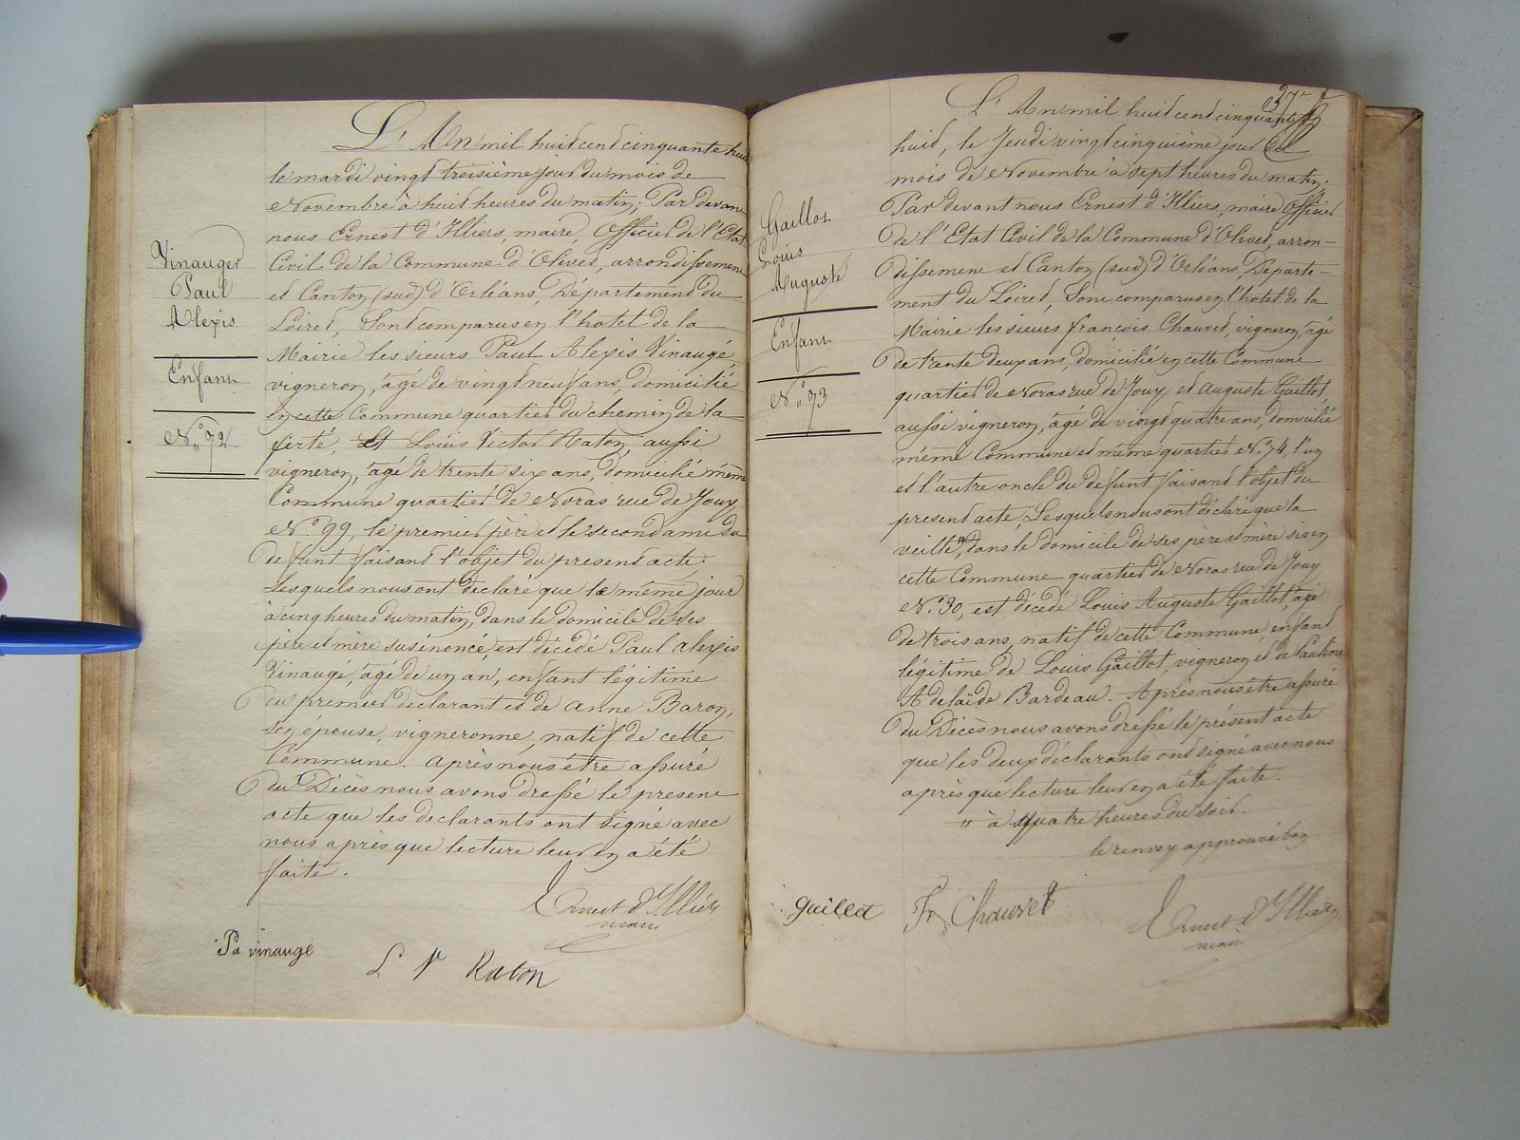 L'An mil huit cent cinquante huit
le mardi vingt troisième jour du mois de
Novembre à huit heures du matin; Par devant
nous Ernest d'Illiers, maire, Officier de l'Etat
Civil de la Commune d'Olivet, arrondissement
et Canton (sud) d'Orléans, Département du
Loiret, Sont comparus en l'hotel de la
Mairie les sieurs Paul Alexis Vinaugé,
vigneron, âgé de vingt neuf ans, domicilié
en cette Commune quartier du chemin de la
ferté, et Louis Victor Raton, aussi
vigneron, âgé de trente six ans, domicilié même
Commune quartier de Noras rue de Jouy
N.º 99, le premier père et le second ami du
défunt faisant l'objet du present acte.
Lesquels nous ont déclaré que le même jour
à cinq heures du matin, dans le domicile de ses
père et mère susénoncé, est décédé Paul alexis
Vinaugé, âgé de un an, enfant légitime
du premier déclarant et de Anne Baron,
son épouse, vigneronne, natif de cette
Commune. Après nous être assuré
du Décès nous avons dressé le present
acte que les declarants ont signé avec
nous après que lecture leur en a été
faite.
Vinauger
Paul
Alexis
Enfant
N.º 72
Ernest d'Illiers
maire
Pa vinauge
L V Raton
37
L'An mil huit cent cinquante
huit, le Jeudi vingt cinquième jour du
mois de Novembre à sept heures du matin.
Par devant nous Ernest d'Illiers, maire Officier
de l'Etat Civil de la Commune d'Olivet, arron-
dissement et Canton (sud) d'Orléans, Departe-
ment du Loiret, Sont comparus en l'hotel de la
Mairie les sieurs françois Chauvet, vigneron, âgé
de trente deux ans, domicilié en cette Commune
quartier de Noras rue de Jouy et Auguste Gaillot,
aussi vigneron, âgé de vingt quatre ans, domicilié
même Commune et même quartier N.º 74, l'un
et l'autre oncle du défunt faisant l'objet du
present acte; Lesquels nous ont déclaré que la
veille, dans le domicile de ses père et mère sis en
cette Commune quartier de Noras rue de Jouy
N.º 30, est décédé Louis Auguste Gaillot, âgé
de trois ans, natif de cette Commune, enfant
légitime de Louis Gaillot, vigneron et de Pauline
Adelaïde Bardeau. Après nous être assuré
du Décès nous avons dressé le présent acte
que les deux déclarants ont signé avec nous
après que lecture leur en a été faite.
" à quatre heures du soir.
le renvoy approuvé bon
Gaillot
Louis
Auguste
Enfant
N.º 73
guillot
Fr Chauvet
Ernest d'Illiers
maire